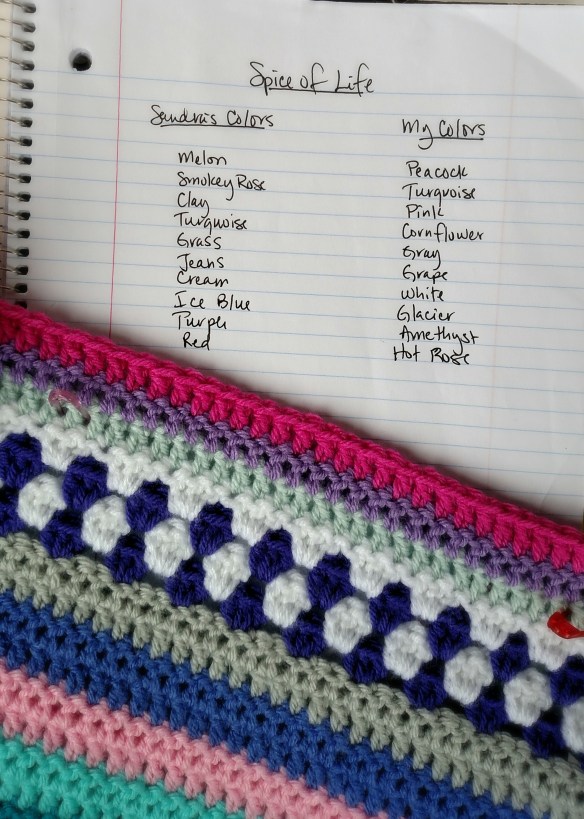 Spice of Life
Sandra's Colors
Melon
Smokey Rose
Clay
Turquoise
Grass
Jeans
Cream
Ice Blue
Purple
Red
My Colors
Peacock
Turquoise
Pink
Cornflower
Gray
Grape
White
Glacier
Amethyst
Hot Rose